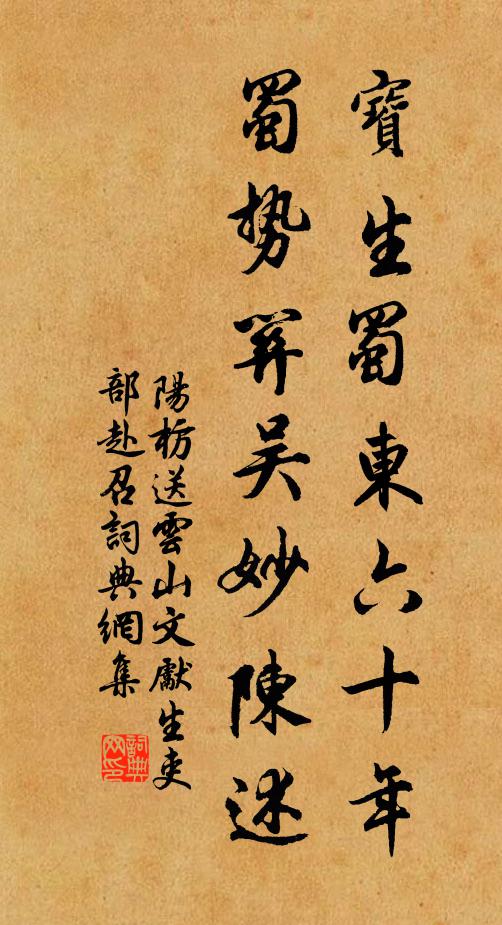 寶生蜀東六十年
蜀勢笄吳妙陳述
陽枋送雲山文獻生吏
部赴召詞典網集
詞典
网印